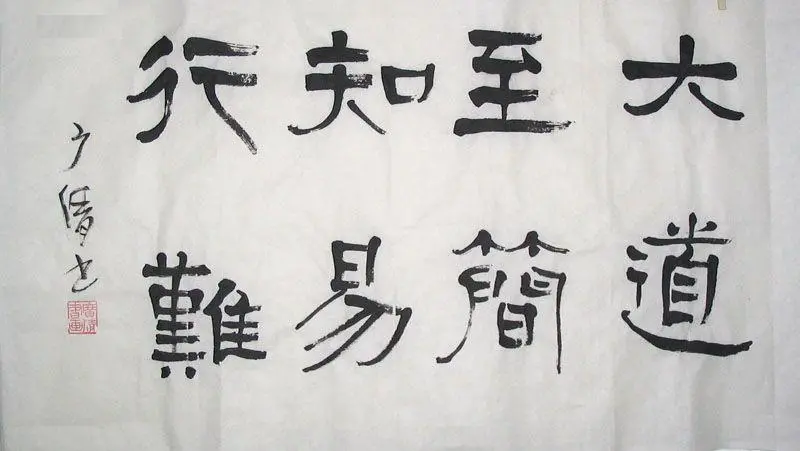 大道
至簡
知易
行難
广僐书